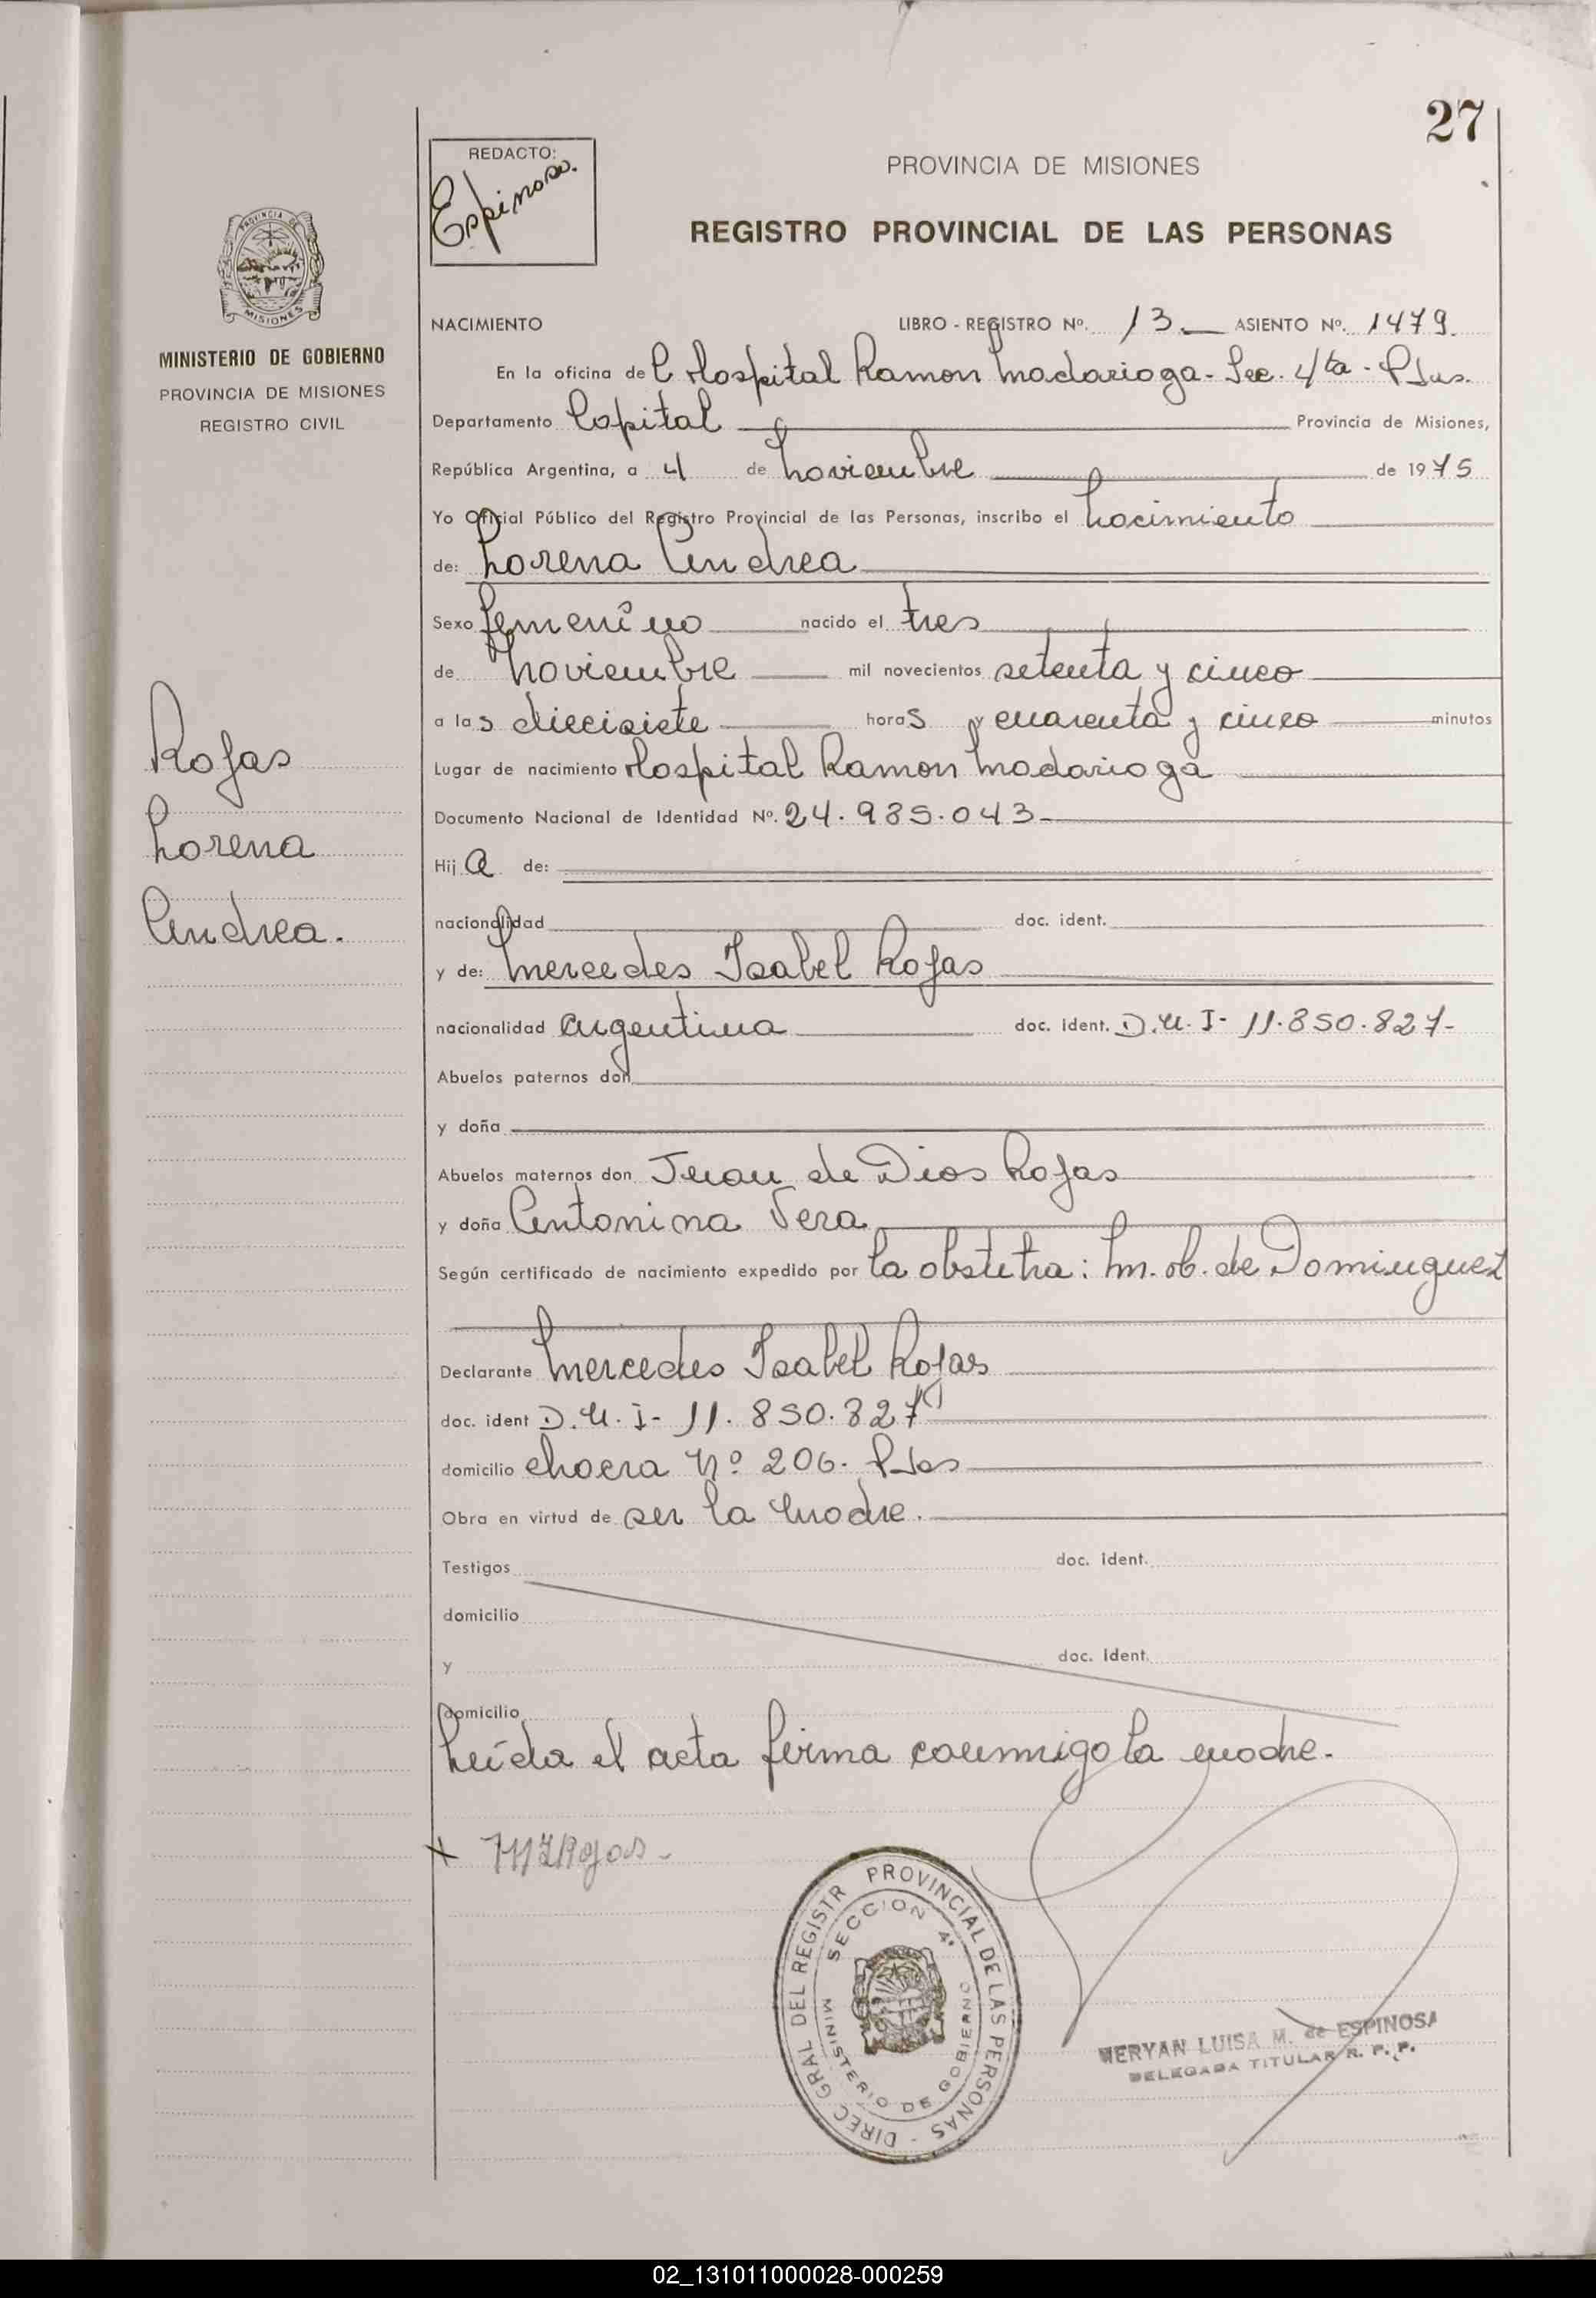 27
REDACTO:
Espinosa.
PROVINCIA DE MISIONES
REGISTRO PROVINCIAL DE LAS PERSONAS
PROVINCIA DE MISIONES
MINISTERIO DE GOBIERNO
PROVINCIA DE MISIONES
REGISTRO CIVIL
Rojas
Lorena
Andrea.
NACIMIENTO LIBRO - REGISTRO Nº. 13 ASIENTO Nº. 1479.
En la oficina del Hospital Ramon Madariaga - Sec. 4ta - Pdas.
Departamento Capital Provincia de Misiones,
República Argentina, a 4 de Noviembre de 1975
Yo Oficial Público del Registro Provincial de las Personas, inscribo el Nacimiento
de: Lorena Andrea
Sexo femenino nacido el tres
de Noviembre mil novecientos setenta y cinco
a las diecisiete horas y cuarenta y cinco minutos
Lugar de nacimiento Hospital Ramon Madariaga
Documento Nacional de Identidad Nº. 24.985.043-
Hija de:
nacionalidad doc. ident.
y de: Mercedes Isabel Rojas
nacionalidad argentina doc. ident. D.N.I- 11.850.827-
Abuelos paternos don
y doña
Abuelos maternos don Juan de Dios Rojas
y doña Antonina Vera
Según certificado de nacimiento expedido por la obstetra: M. ob. de Dominguez
Declarante Mercedes Isabel Rojas
doc. ident D.N.I- 11.850.827
domicilio chacra Nº 206. Pdas
Obra en virtud de ser la Madre.
Testigos doc. ident.
domicilio
y doc. ident.
domicilio
Leída el acta firma conmigo la madre.
x MIRojas-
DIREC GRAL DEL REGISTR PROVINCIAL DE LAS PERSONAS -
SECCION 4ª
MINISTERIO DE GOBIERNO
MERYAN LUISA M. de ESPINOSA
DELEGADA TITULAR R. P. P.
02_131011000028-000259